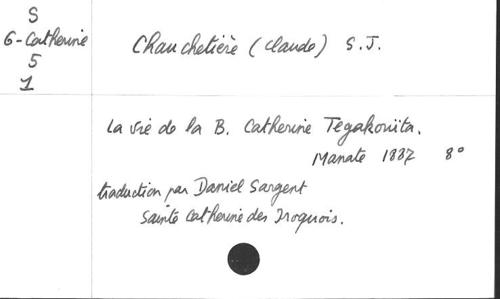 S
6-Catherine
5
1
Chauchetière (Claude) S.J.
La vie de la B. Catherine Tegakouita.
Manate 1887 8°
traduction par Daniel Sargent
Sainte Catherine des Iroquois.